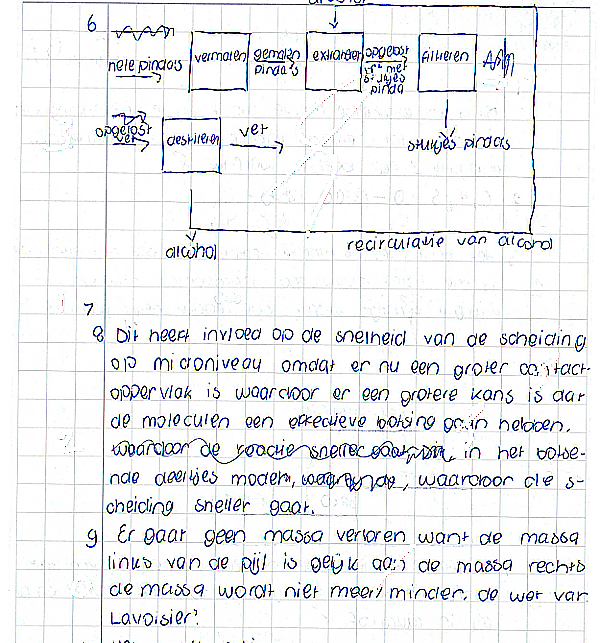 6
hele pinda's
vermalen
gemalen
pinda's
extraheren
opgelost
vet met
stukjes
pinda
filtreren
opgelost
vet
destilleren
vet
stukjes pindas
alcohol
recirculatie van alcohol
7
8 Dit heeft invloed op de snelheid van de scheiding
op microniveau omdat er nu een groter contact-
oppervlak is waardoor er een grotere kans is dat
de moleculen een effectieve botsing gaan hebben.
waardoor de reactie sneller gaat in het botse-
nde deeltjes modem, waardoor de s-
cheiding sneller gaat.
9 Er gaat geen massa verloren want de massa
links van de pijl is gelijk aan de massa rechts
de massa wordt niet meer/minder. de wet van
Lavoisier.